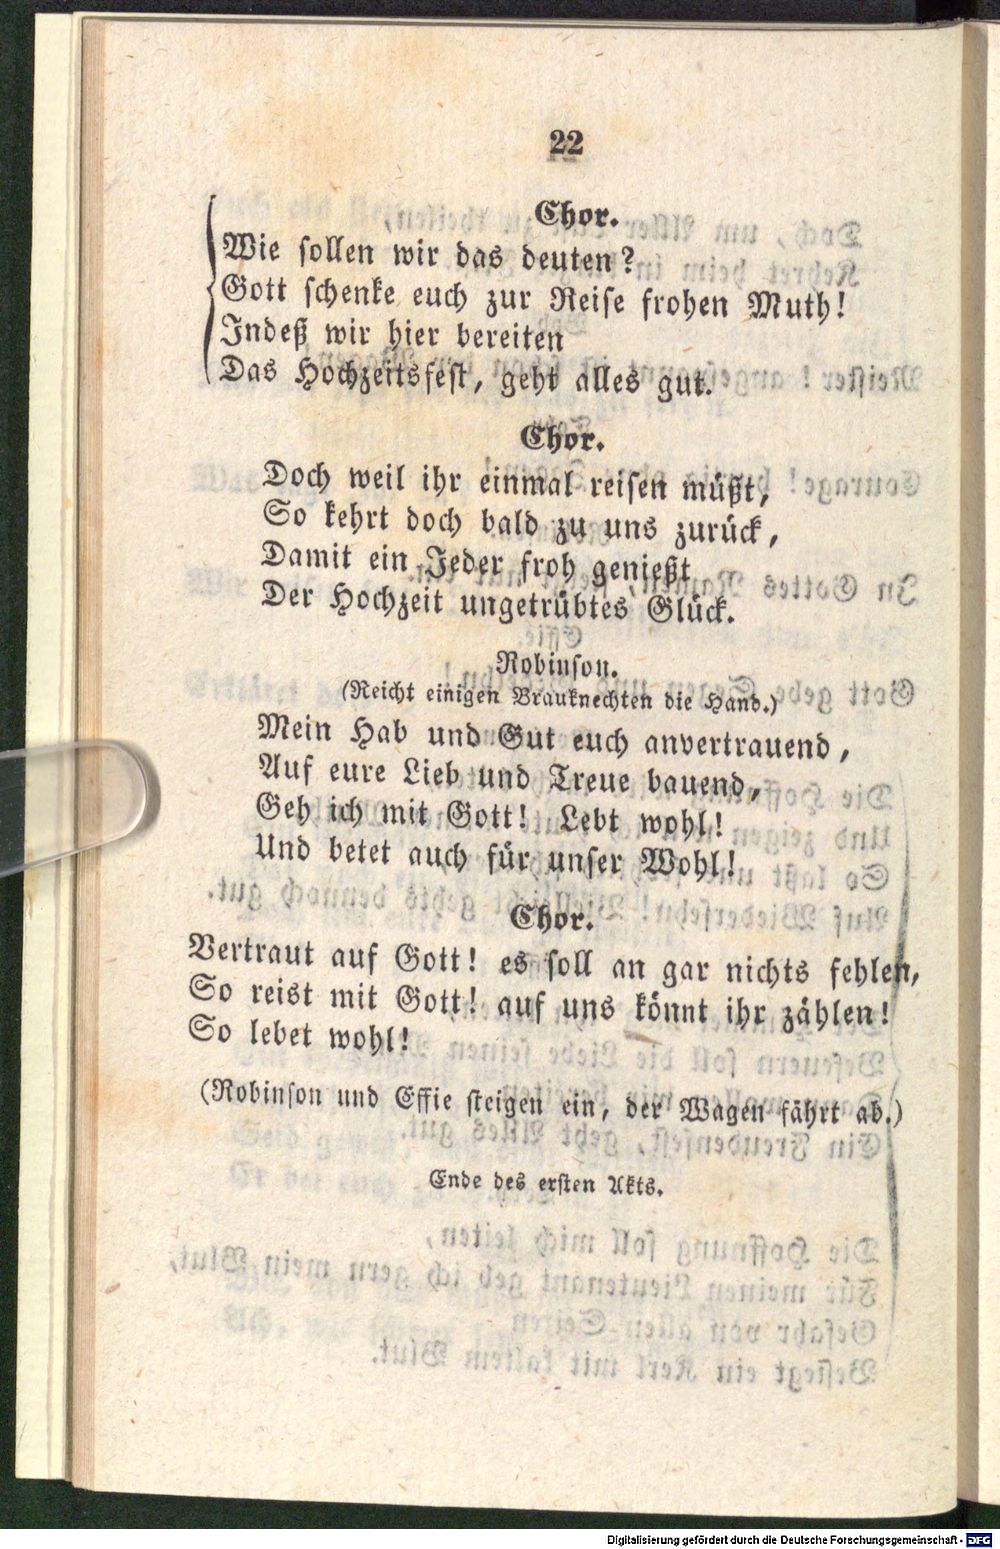 22
Chor.
Wie sollen wir das deuten?
Gott schenke euch zur Reise frohen Muth!
Indeß wir hier bereiten
Das Hochzeitsfest, geht alles gut.
Chor.
Doch weil ihr einmal reisen müßt,
So kehrt doch bald zu uns zurück,
Damit ein Jeder froh genießt
Der Hochzeit ungetrübtes Glück.
Robinson.
(Reicht einigen Brauknechten die Hand.)
Mein Hab und Gut euch anvertrauend,
Auf eure Lieb und Treue bauend,
Geh ich mit Gott! Lebt wohl!
Und betet auch für unser Wohl!
Chor.
Vertraut auf Gott! es soll an gar nichts fehlen,
So reist mit Gott! auf uns könnt ihr zählen!
So lebet wohl!
(Robinson und Effie steigen ein, der Wagen fährt ab.)
Ende des ersten Akts.
Digitalisierung gefördert durch die Deutsche Forschungsgemeinschaft - DFG